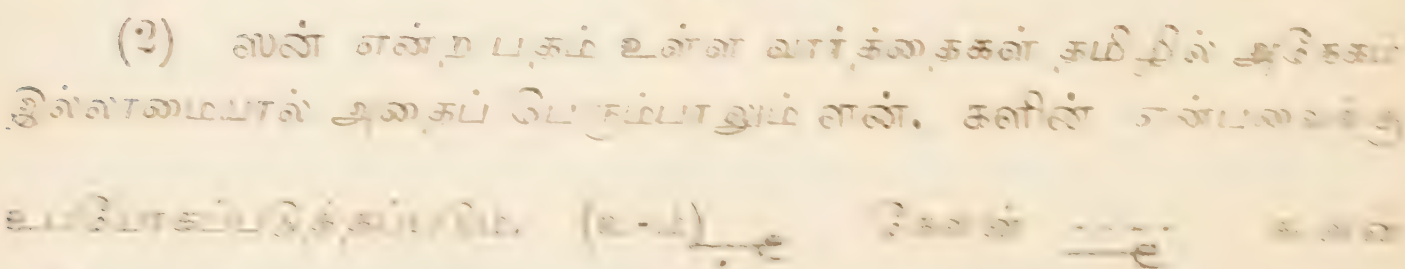 (2) ஸன் என்ற பதம் உள்ள வார்த்தைகள் தமிழில் அதிகம்
இல்லாமையால் அதைப் பெரும்பாலும் ளன், களின் என்பவைக்கு
உபயோகப்படுத்தப்படும். (உ-ம்)